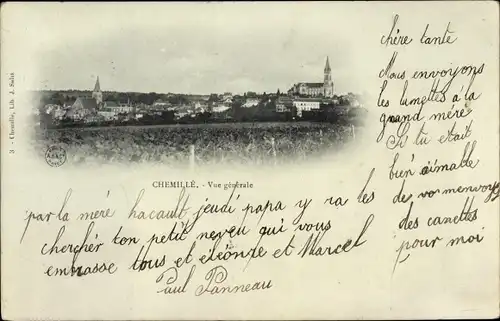 3 - Chemillé, Lib. J. Salin
CHEMILLÉ. - Vue générale
chère tante
Nous envoyons
les lunettes à la
grand mére
Si tu était
bièn aimable
de vo menvoyer
des canettes
pour moi
par la méré hacault jeudi papa y ra les
chercher ton petit neveu qui vous
embrasse tous et éléonze et Marcel
Paul Panneau